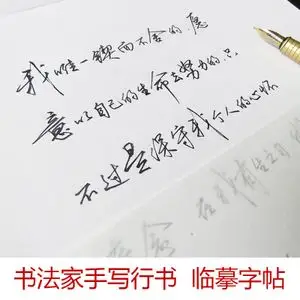 我唯一锲而不舍的，愿
意以自己的生命去努力的，只
不过是保守我个人的心怀
书法家手写行书 临摹字帖